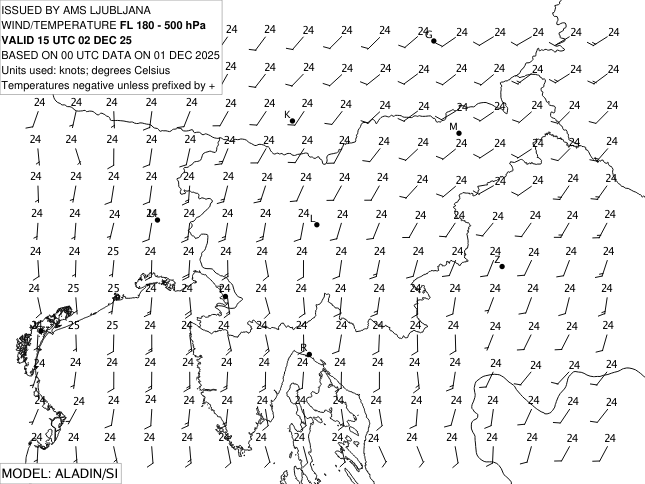 ISSUED BY AMS LJUBLJANA
WIND/TEMPERATURE FL 180 - 500 hPa
VALID 15 UTC 02 DEC 25
BASED ON 00 UTC DATA ON 01 DEC 2025
Units used: knots; degrees Celsius
Temperatures negative unless prefixed by +
24 24 24 24 24 G 24 24 24 24 24
24 24 24 24 24 24 24 24 24 24 24
24 24 24 24 24 24 24 24 24 24 24 24 24 24 24 24
K
M
24 24 24 24 24 24 24 24 24 24 24 24 24 24 24 24
24 24 24 24 24 24 24 24 24 24 24 24 24 24 24 24
24 24 24 24 24 24 24 24 L 24 24 24 24 24 24 24 24
24 24 25 24 24 24 24 24 24 24 24 24 24 24 24 24
Z
24 25 25 24 24 24 24 24 24 24 24 24 24 24 24 24
24 25 25 24 24 24 24 24 24 24 24 24 24 24 24 24
R
24 24 24 24 24 24 24 24 24 24 24 24 24 24 24 24
24 24 24 24 24 24 24 24 24 24 24 24 24 24 24 24
24 24 24 24 24 24 24 24 24 24 24 24 24 24 24 24
MODEL: ALADIN/SI